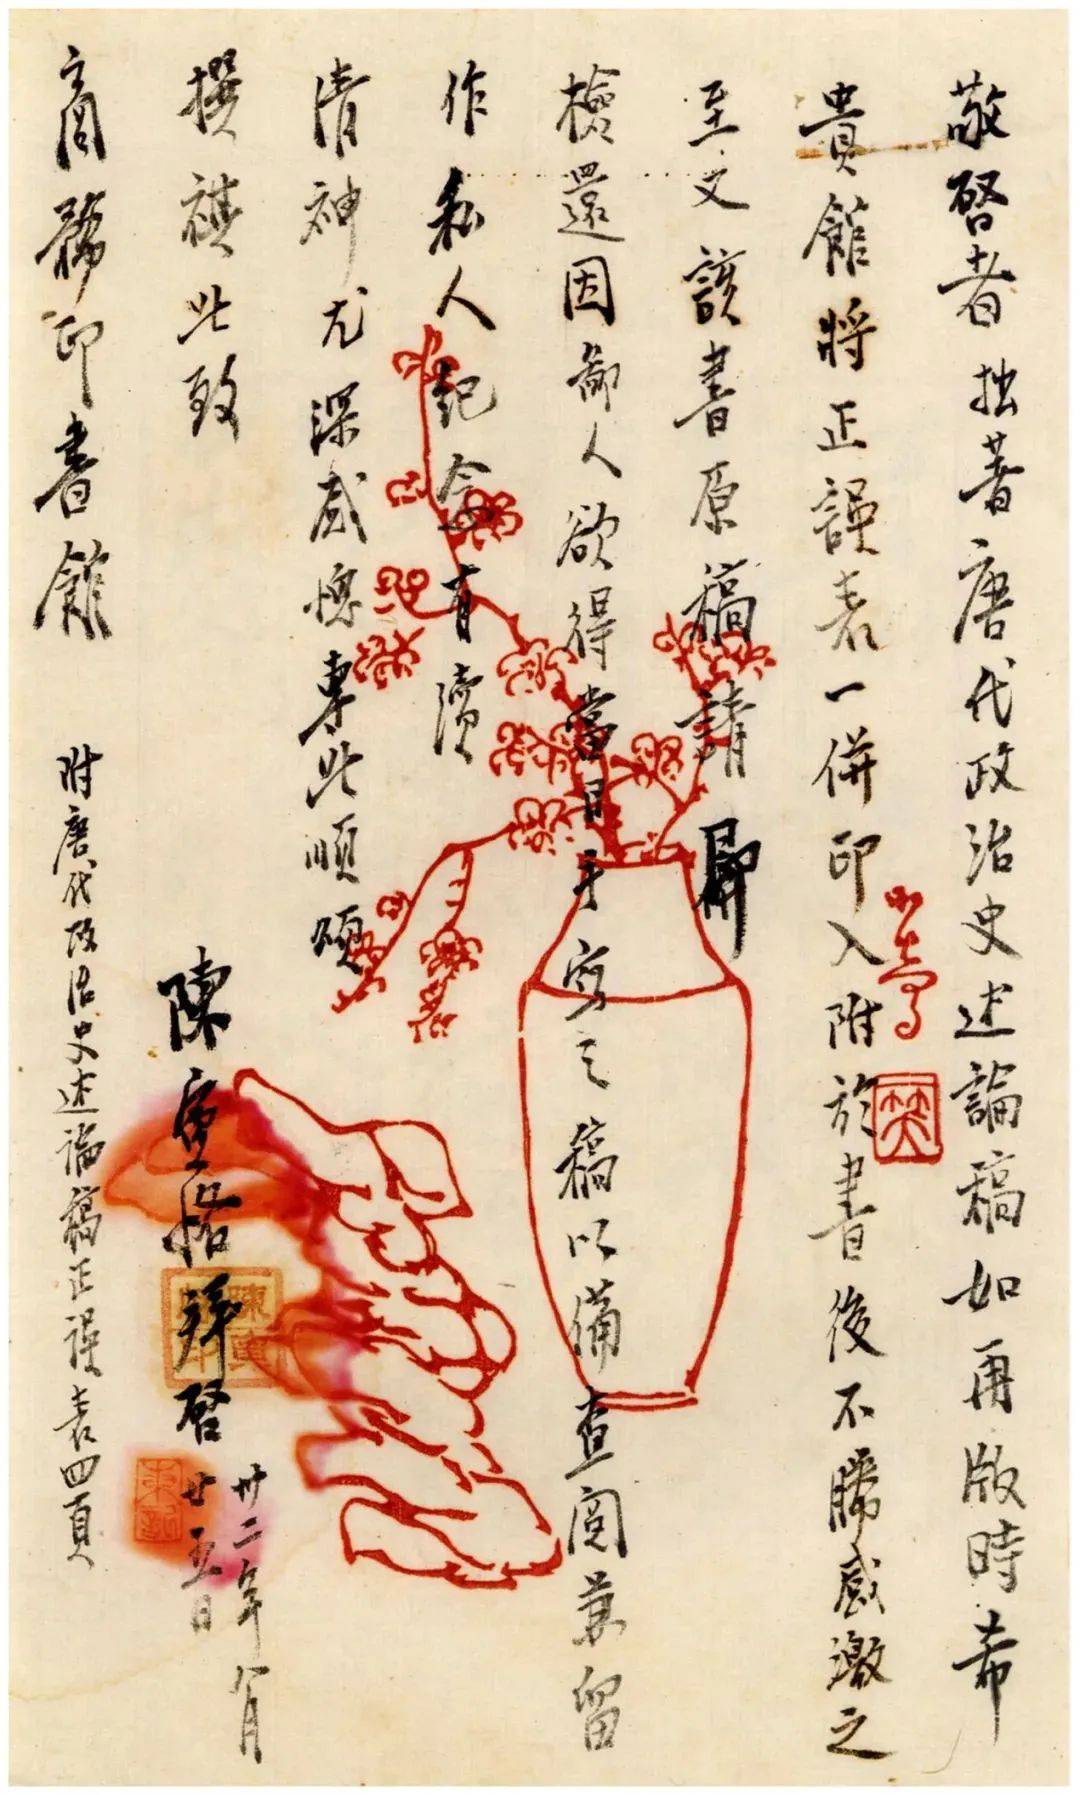 敬啓者拙著唐代政治史述論稿如再版時希
貴館將正誤表一併印入附於書後不勝感激之
至又該書原稿請
檢還因鄙人欲得當日手寫之稿以備查閱兼留
作私人紀念有瀆
清神尤深感愧專此順頌
撰祺此致
商務印書館
陳寅恪拜啓
卅二年八月
廿五日
附唐代政治史述論稿正誤表四頁